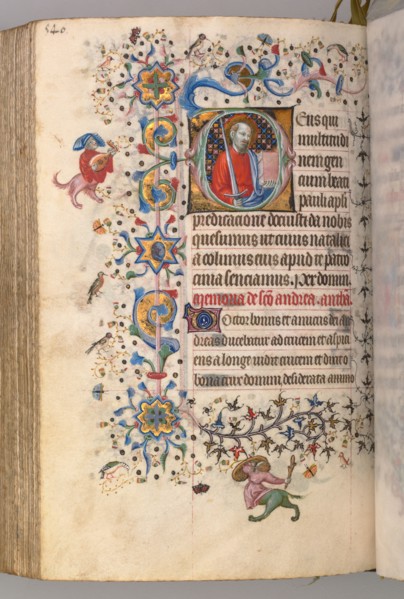 DEus qui
multitudi
nem gen
cium beati
pauli apli
predicacione docuisti da nobis
quesumus ut cuius natalici
a colimus eius apud te patro
cinia senciamus. Per domin.
Memoria de sco andrea. antha.
Doctor bonus et amicus dei an
dreas ducebatur ad crucem et aspici
ens a longe vidit crucem et dixit o
bona crux domini desiderata animo